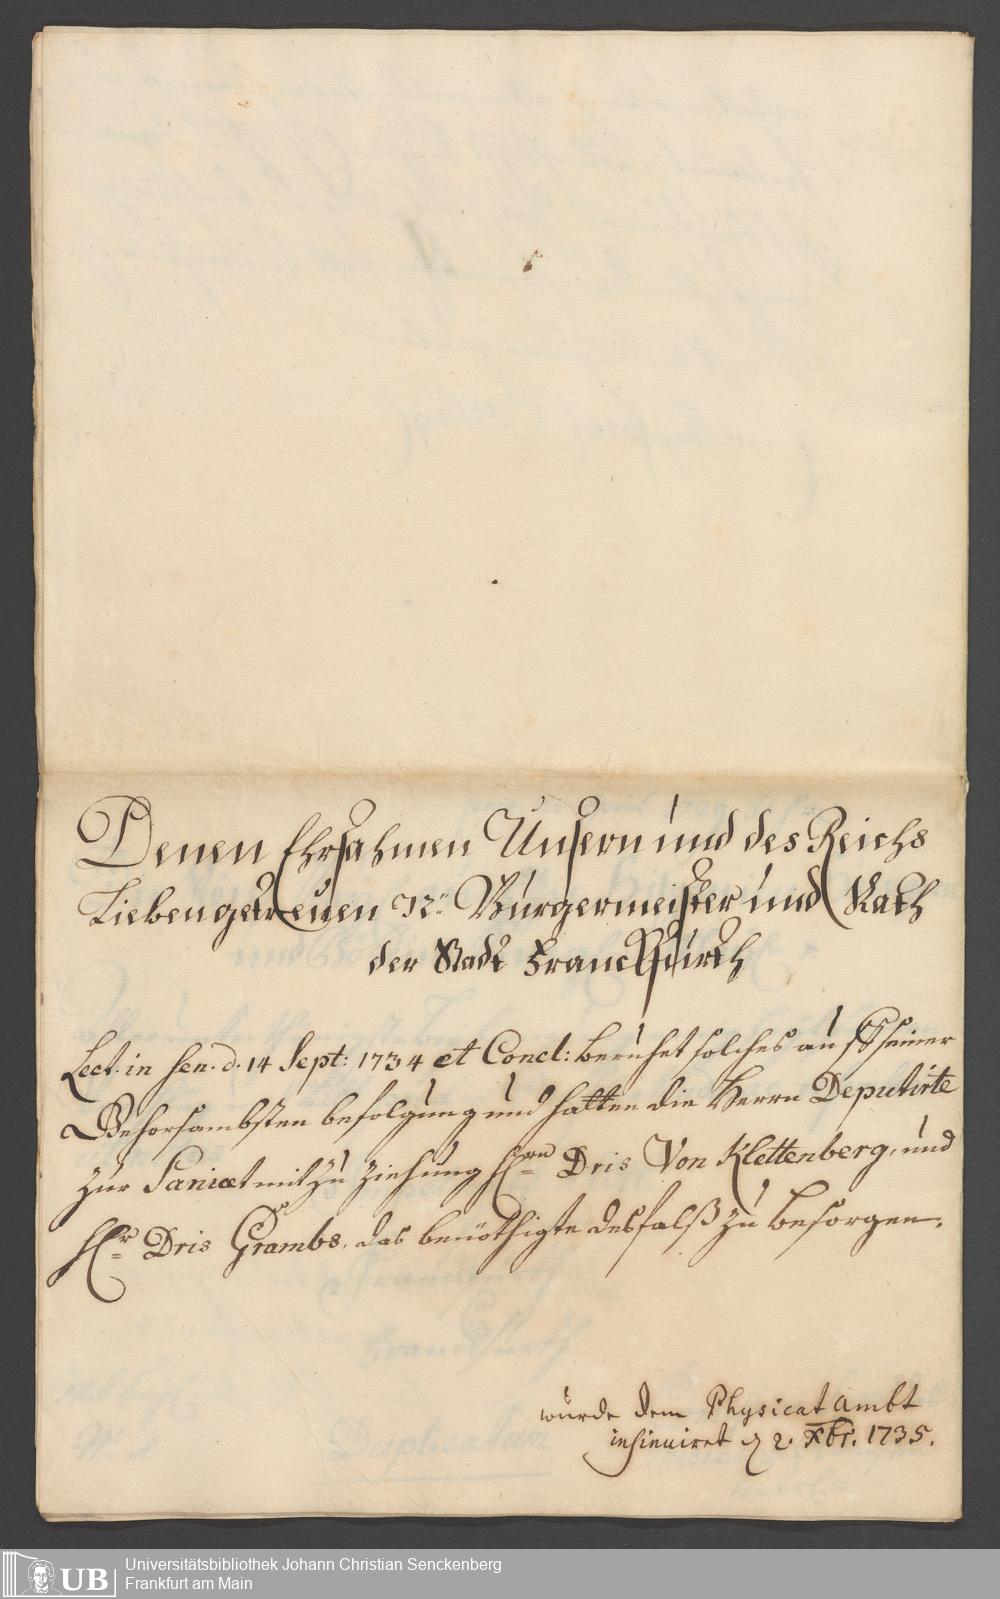 Denen Ehrsahmen Unsern und des Reichs
Lieben getreuen N: Burgermeister und Rath
der Stadt Franckfurth
Lect. in Sen. d. 14 Sept: 1734 et Concl: beruhet solches auf seiner
Gehorsambsten befolgung und hatten die Herrn Deputirte
zur Saniaet mit zu Ziehung Hrn Dris Von Klettenberg, und
Hr Dris Grambs, das benöthigte desfalß zu besorgen.
wurde dem Physicat Ambt
insinuiret d 2. Xbr. 1735.
UB
Universitätsbibliothek Johann Christian Senckenberg
Frankfurt am Main